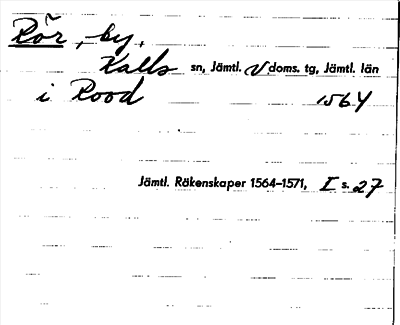 Rör, by,
Kalls sn, Jämtl. V doms. tg, Jämtl. län
i Rood 1564
Jämtl. Räkenskaper 1564-1571, I s. 27